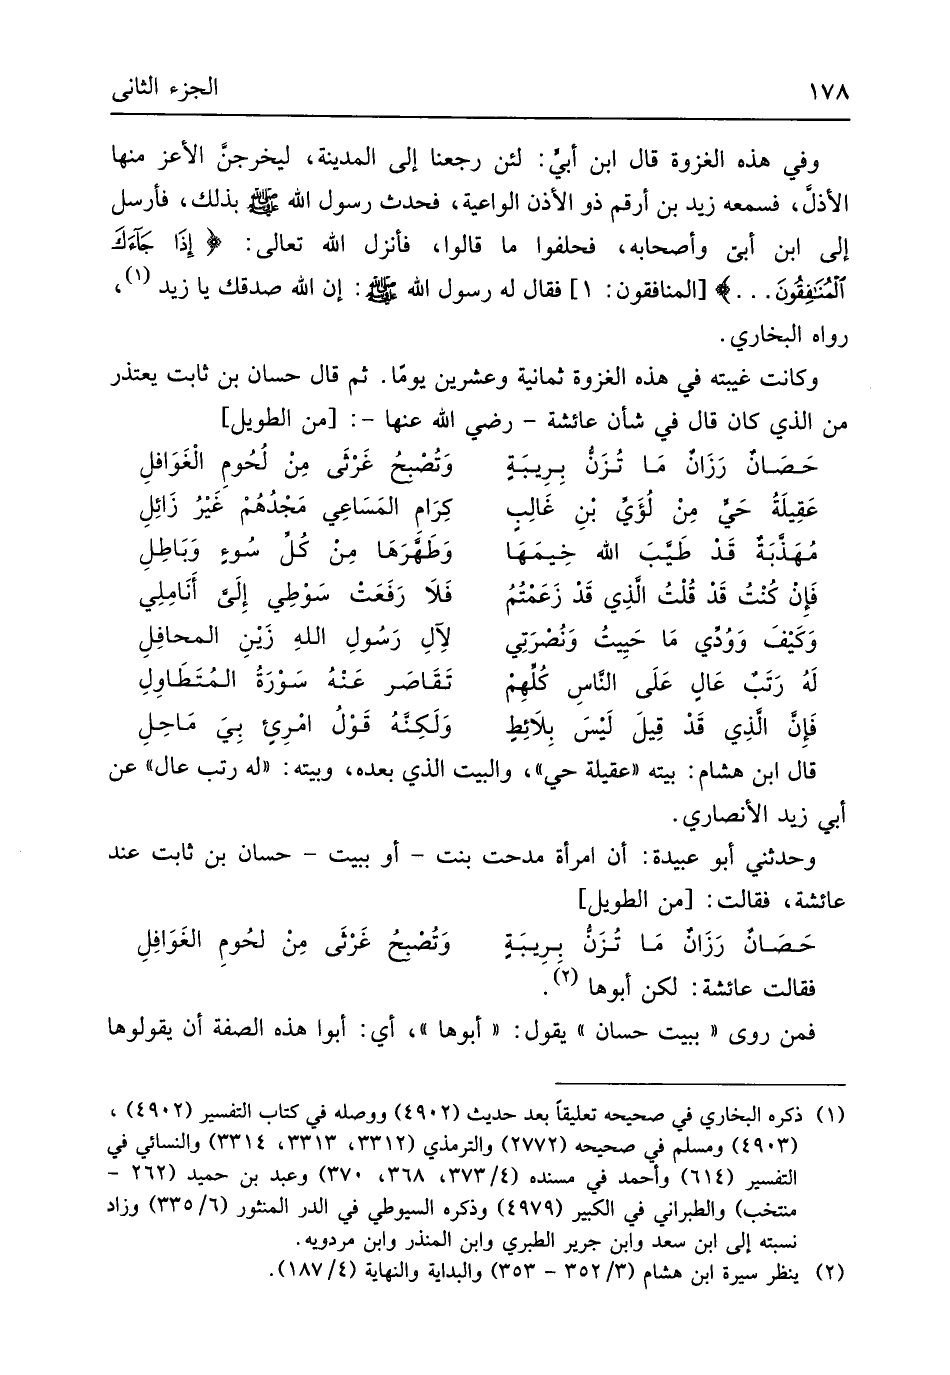 ١٧٨ الجزء الثانى
وفي هذه الغزوة قال ابن أبيٍّ: لئن رجعنا إلى المدينة، ليخرجنَّ الأعز منها
الأذلَّ، فسمعه زيد بن أرقم ذو الأذن الواعية، فحدث رسول الله ﷺ بذلك، فأرسل
إلى ابن أبىّ وأصحابه، فحلفوا ما قالوا، فأنزل الله تعالى: ﴿ إِذَا جَآءَكَ
ٱلْمُنَٰفِقُونَ...﴾ [المنافقون: ١] فقال له رسول الله ﷺ: إن الله صدقك يا زيد (١)،
رواه البخاري.
وكانت غيبته في هذه الغزوة ثمانية وعشرين يومًا. ثم قال حسان بن ثابت يعتذر
من الذي كان قال في شأن عائشة – رضي الله عنها –: [من الطويل]
حَصَانٌ رَزَانٌ مَا تُزَنُّ بِرِيبَةٍ وَتُصْبِحُ غَرْثَى مِنْ لُحُومِ الْغَوَافِلِ
عَقِيلَةُ حَيٍّ مِنْ لُؤَيِّ بْنِ غَالِبٍ كِرَامِ المَسَاعِي مَجْدُهُمْ غَيْرُ زَائِلِ
مُهَذَّبَةٌ قَدْ طَيَّبَ الله خِيمَهَا وَطَهَّرَهَا مِنْ كُلِّ سُوءٍ وَبَاطِلِ
فَإِنْ كُنْتُ قَدْ قُلْتُ الَّذِي قَدْ زَعَمْتُمُ فَلَا رَفَعَتْ سَوْطِي إِلَيَّ أَنَامِلِي
وَكَيْفَ وَوُدِّي مَا حَيِيتُ وَنُصْرَتِي لِآلِ رَسُولِ اللهِ زَيْنِ المحافلِ
لَهُ رَتَبٌ عَالٍ عَلَى النَّاسِ كُلِّهِمْ تَقَاصَر عَنْهُ سَوْرَةُ المُتَطَاوِلِ
فَإِنَّ الَّذِي قَدْ قِيلَ لَيْسَ بِلَائِطٍ وَلَكِنَّهُ قَوْلُ امْرِئٍ بِيَ مَاحِلِ
قال ابن هشام: بيته «عقيلة حي»، والبيت الذي بعده، وبيته: «له رتب عال» عن
أبي زيد الأنصاري.
وحدثني أبو عبيدة: أن امرأة مدحت بنت – أو ببيت – حسان بن ثابت عند
عائشة، فقالت: [من الطويل]
حَصَانٌ رَزَانٌ مَا تُزَنُّ بِرِيبَةٍ وَتُصْبِحُ غَرْثَى مِنْ لحُومِ الغَوَافِلِ
فقالت عائشة: لكن أبوها (٢).
فمن روى « ببيت حسان » يقول: « أبوها »، أي: أبوا هذه الصفة أن يقولوها
(١) ذكره البخاري في صحيحه تعليقاً بعد حديث (٤٩٠٢) ووصله في كتاب التفسير (٤٩٠٢) ،
(٤٩٠٣) ومسلم في صحيحه (٢٧٧٢) والترمذي (٣٣١٢، ٣٣١٣، ٣٣١٤) والنسائي في
التفسير (٦١٤) وأحمد في مسنده (٤/ ٣٧٣، ٣٦٨، ٣٧٠) وعبد بن حميد (٢٦٢ –
منتخب) والطبراني في الكبير (٤٩٧٩) وذكره السيوطي في الدر المنثور (٦/ ٣٣٥) وزاد
نسبته إلى ابن سعد وابن جرير الطبري وابن المنذر وابن مردويه.
(٢) ينظر سيرة ابن هشام (٣/ ٣٥٢ – ٣٥٣) والبداية والنهاية (٤/ ١٨٧).